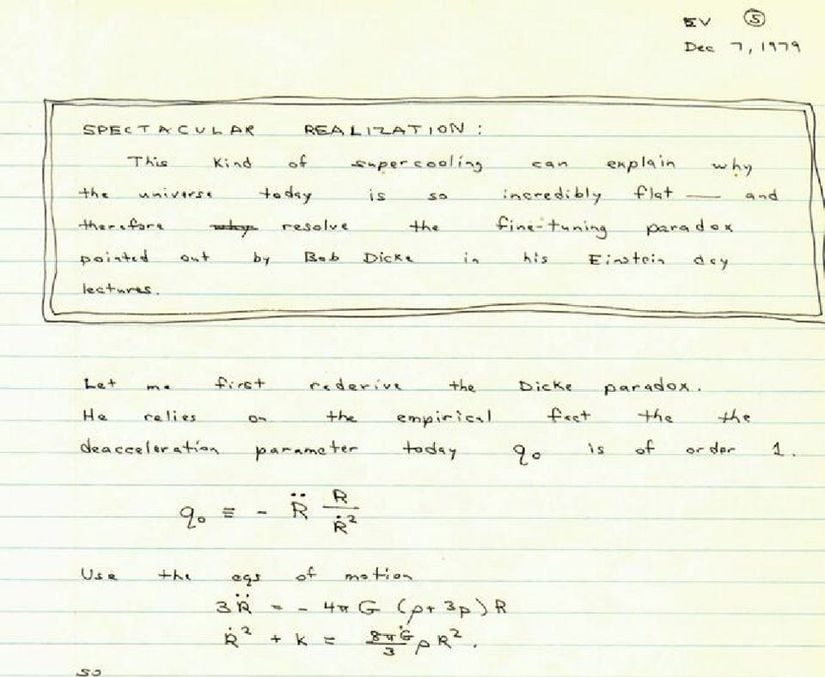 EV ⑤
Dec 7, 1979
SPECTACULAR REALIZATION:
This kind of supercooling can explain why
the universe today is so incredibly flat — and
therefore resolve the fine-tuning paradox
pointed out by Bob Dicke in his Einstein day
lectures.
Let me first rederive the Dicke paradox.
He relies on the empirical fact the the
deacceleration parameter today q₀ is of order 1.
q₀ ≡ - R̈ R/Ṙ²
Use the eqs of motion
3R̈ = - 4πG (ρ+3p)R
Ṙ² + k = 8πG/3 ρR².
so